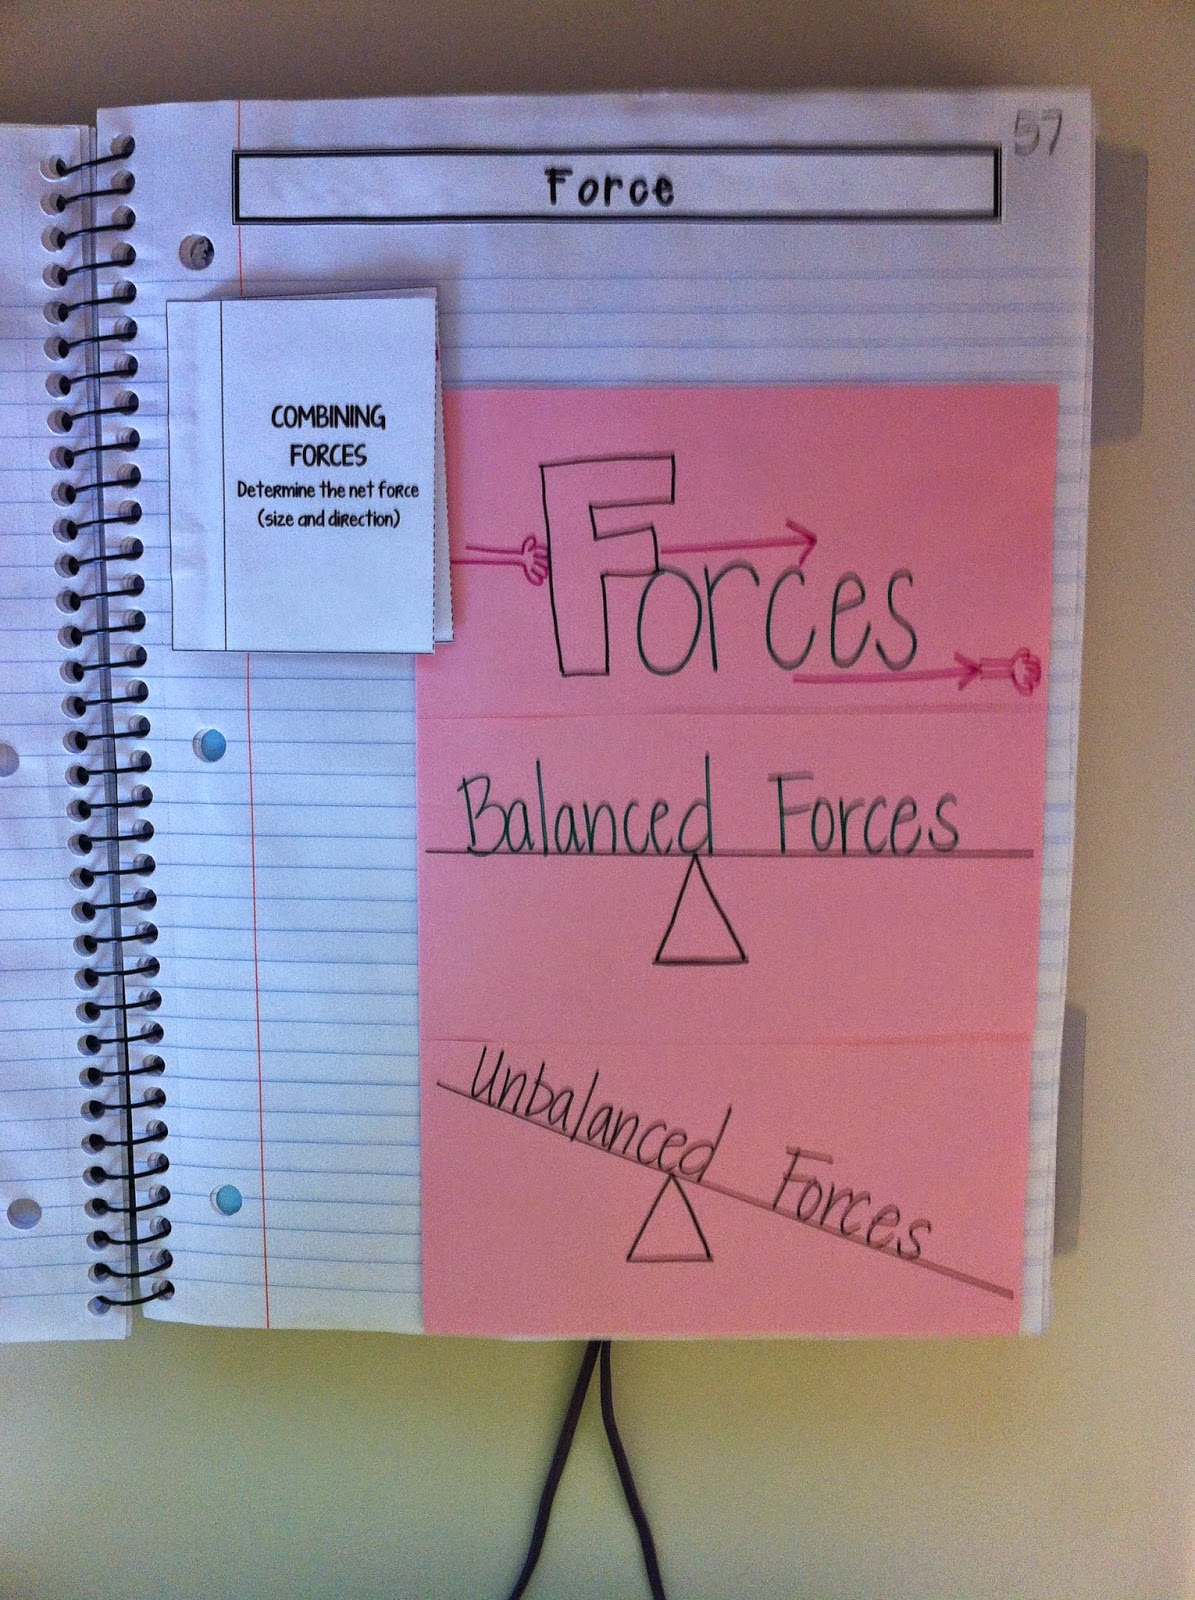 57
Force
COMBINING
FORCES
Determine the net force
(size and direction)
Forces
Balanced Forces
Unbalanced Forces